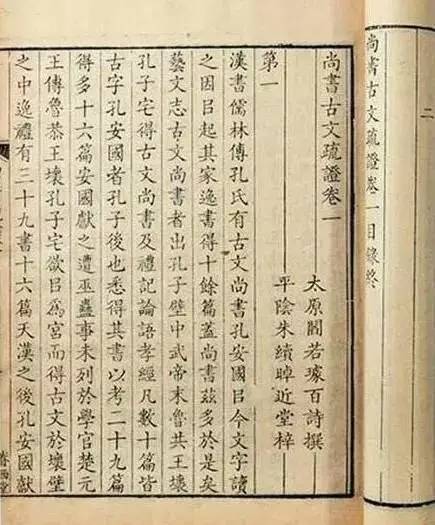 二
尚書古文疏證卷一目錄終
尚書古文疏證卷一
太原閻若璩百詩撰
平陰朱續晫近堂梓
第一
漢書儒林傳孔氏有古文尚書孔安國㠯今文字讀
之因㠯起其家逸書得十餘篇蓋尚書茲多於是矣
藝文志古文尚書者出孔子壁中武帝末魯共王壞
孔子宅得古文尚書及禮記論語孝經凡數十篇皆
古字孔安國者孔子後也悉得其書以考二十九篇
得多十六篇安國獻之遭巫蠱事未列於學官楚元
王傳魯恭王壞孔子宅欲㠯爲宮而得古文於壞壁
之中逸禮有三十九書十六篇天漢之後孔安國獻
眷西堂